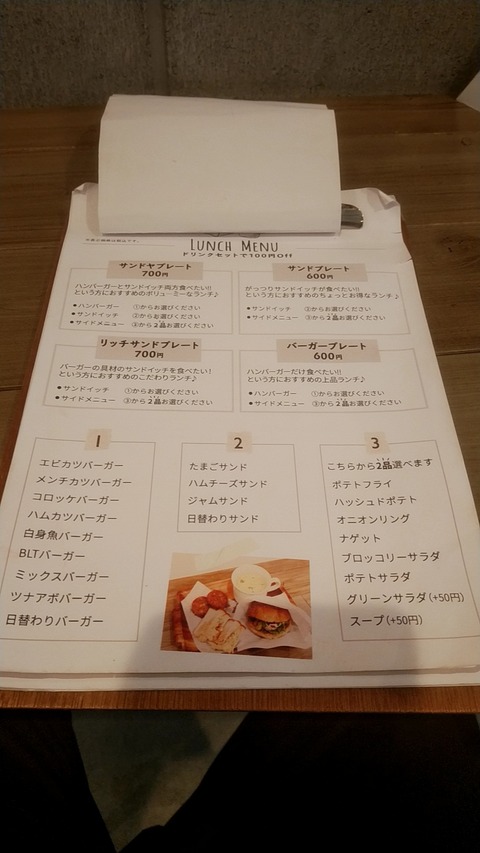 ※表示価格は税込です。
LUNCH MENU
ドリンクセットで100円Off
サンドヤプレート
700円
ハンバーガーとサンドイッチ両方食べたい!!
という方におすすめのボリューミーなランチ♪
● ハンバーガー ①からお選びください
● サンドイッチ ②からお選びください
● サイドメニュー ③から2品お選びください
サンドプレート
600円
がっつりサンドイッチが食べたい!!
という方におすすめのちょっとお得なランチ♪
● サンドイッチ ②からお選びください
● サイドメニュー ③から2品お選びください
リッチサンドプレート
700円
バーガーの具材のサンドイッチを食べたい!
という方におすすめのこだわりランチ♪
● サンドイッチ ①からお選びください
● サイドメニュー ③から2品お選びください
バーガープレート
600円
ハンバーガーだけ食べたい!!
という方におすすめの上品ランチ♪
● ハンバーガー ①からお選びください
● サイドメニュー ③から2品お選びください
1
エビカツバーガー
メンチカツバーガー
コロッケバーガー
ハムカツバーガー
白身魚バーガー
BLTバーガー
ミックスバーガー
ツナアボバーガー
日替わりバーガー
2
たまごサンド
ハムチーズサンド
ジャムサンド
日替わりサンド
3
こちらから2品選べます
ポテトフライ
ハッシュドポテト
オニオンリング
ナゲット
ブロッコリーサラダ
ポテトサラダ
グリーンサラダ(+50円)
スープ(+50円)